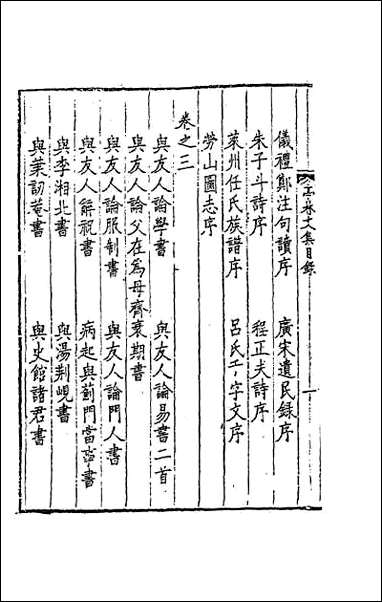 亭林文集目錄
儀禮鄭注句讀序　廣宋遺民錄序
朱子斗詩序　程正夫詩序
萊州任氏族譜序　呂氏千字文序
勞山圖志序
卷之三
與友人論學書　與友人論易書二首
與友人論父在為母齊衰期書
與友人論服制書　與友人論門人書
與友人辭祝書　病起與薊門當事書
與李湘北書　與湯荊峴書
與葉訒菴書　與史館諸君書